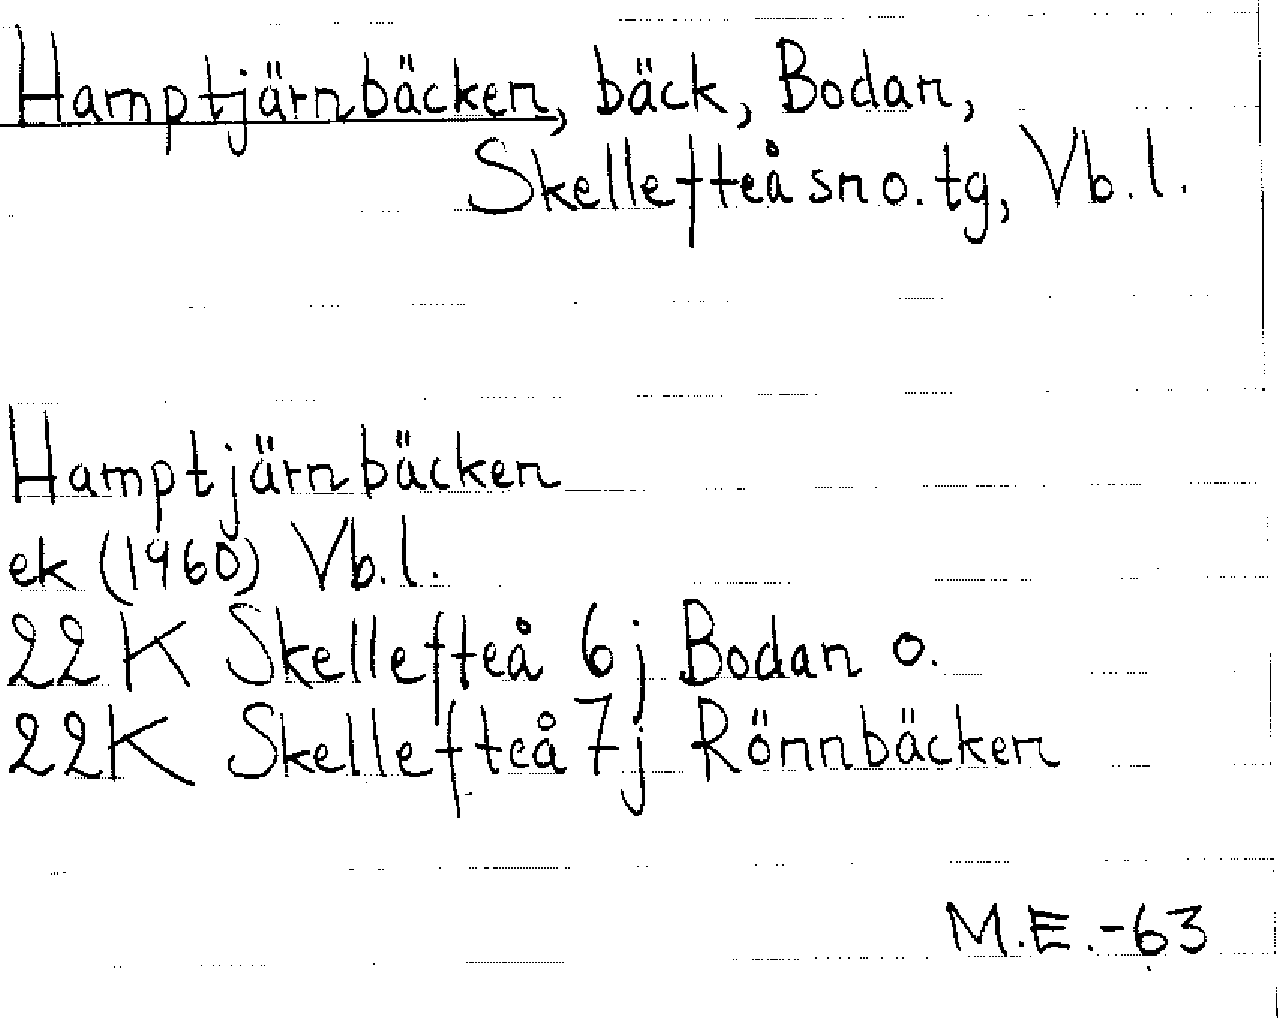 Hamptjärnbäcken, bäck, Bodan,
Skellefteå sn o. tg, Vb. l.
Hamptjärnbäcken
ek (1960) Vb. l.
22K Skellefteå 6j Bodan o.
22K Skellefteå 7j Rönnbäcken
M.E.-63